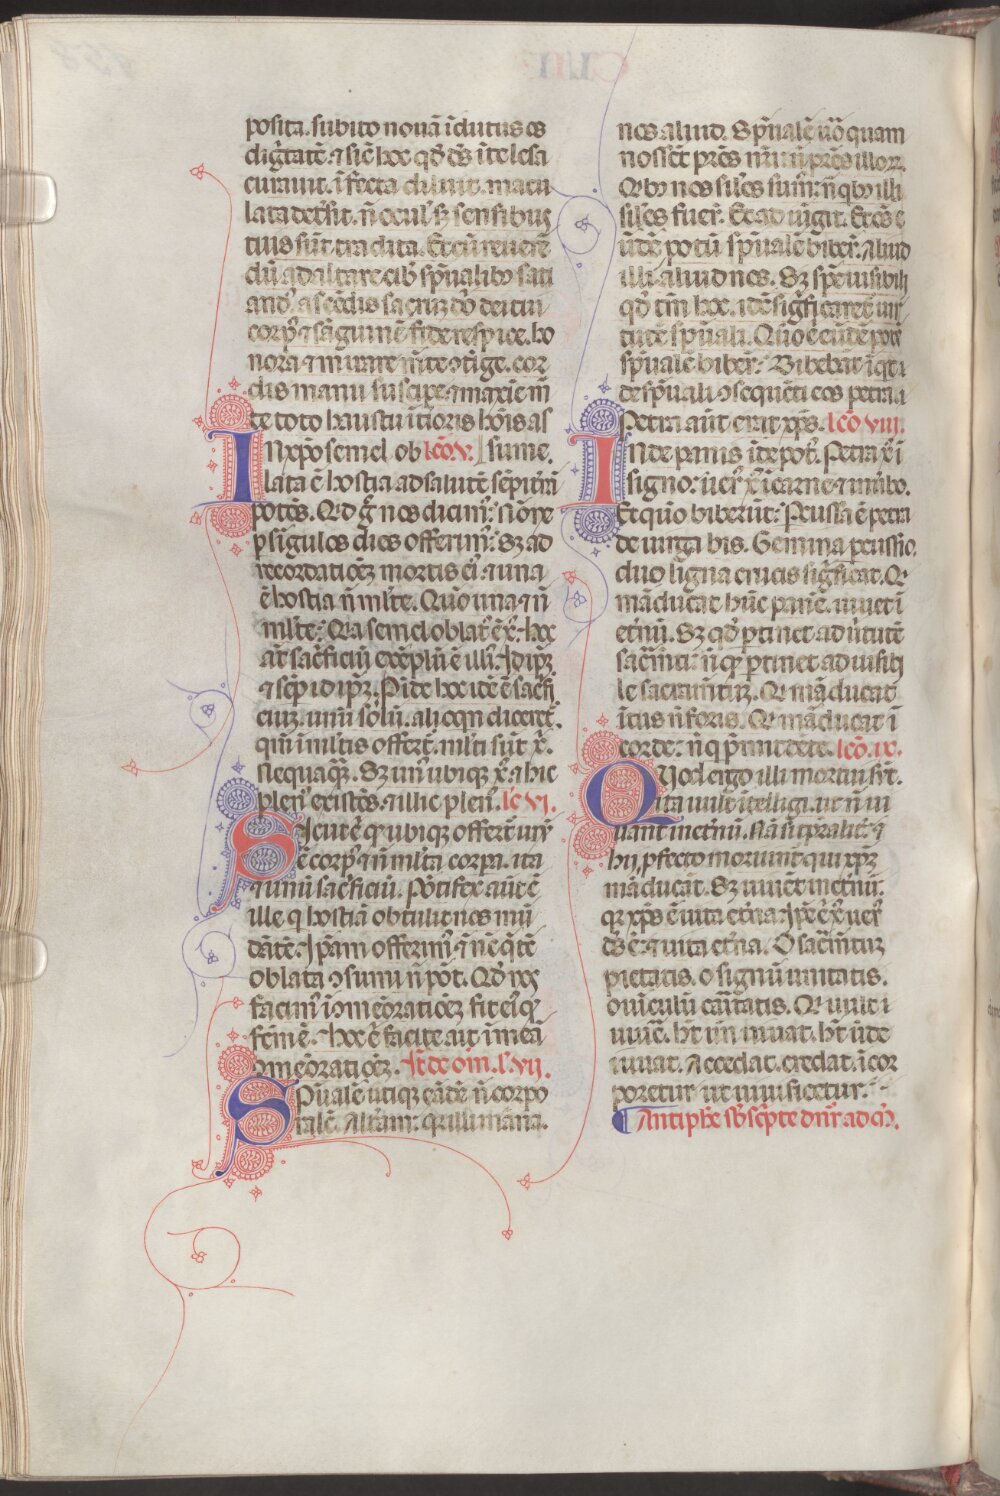 posita. subito nouā īdutus es
dig̅tatē. ⁊ sic̄ hoc qd̄ eēs ī te lesa
curauit. īfecta diluit. macu
lata detsit. n̄ ocul' sꝫ sensibus
tuis sūt tradita. Et cū reuerē
dū ad altare cib' spūalibꝫ sati
and' ascēdis sac̄ꝝ dō dei tui
corp' ⁊ sāguinē fide respice. ho
nora ⁊ mirare m̄te ↄtige. cor
dis manu suscipe. ⁊ maxīe
te toto haustu īterioris hoīs as
IN xpō semel ob lc̄o.v. sume.
lata ē hostia ad salutē sēpitnā
potēs. Qd̄ g̊ nos dicim': nōne
ꝑ sīgulos dies offerim': Sꝫ ad
recordatiōeꝫ mortis ei'. ⁊ una
ē hostia n̄ mlt̄e. Quō una ⁊ n̄
mlt̄e: Qia semel oblat' ē x̄: hoc
āt sac̄ficiū exēplū ē illi': Idipꝫ
⁊ sēꝑ idipꝫ. Pīde hoc idē ē sac̄fi
ciuꝫ. unū solū. alioqn dicert̄.
qm̄ ī mltis offert̄. mlti sūt x̄.
Nequaq̄ꝫ. Sꝫ un' ubiqꝫ x̄. ⁊ hic
plen' existēs. ⁊ illic plen'. lc̄ vi.
Sicut ē qꝛ ubiqꝫ offert̄ unū
ē corp' ⁊ n̄ mlta corpa. ita
⁊ unū sac̄ficiū. Pōtifex aut̄ ē
ille q̄ hostiā obtulit nos mū
dātē. Ipām offerim' ⁊ nc̄ q̄ tc̄
oblata ↄsumi n̄ pōt. Qd̄ nos
facim' ī ↄmēoratiōeꝫ fit ei' qd̄
fcm̄ ē. hoc ē facite ait ī meā
ↄmēoratiōeꝫ. It̄ de oīm. l'. vii.
SPūale utiqꝫ eādē n̄ corpo
ralē. Alīam: qꝛ illi māna.
nos aliud. Spūalē uō quam
nos sēt prēs nr̄i: n̄ prēs illoꝝ.
Qibꝫ nos siles sum': n̄ qbꝫ illi
siles fuer̄. Et ad iūgit. Et oēs e
ūdē potū spūalē biber̄. Aliud
illi. aliud nos. Sꝫ spē uisibili
qd̄ tm̄ hoc. idē sigficaret uir
tute spūali. Quō ē eūdē potū
spūalē biber̄: Bibebāt īqt ì
de spūali ↄsequēti eos petra.
Petra aūt erat xp̄s. lc̄o viii.
INde panis īde pot'. Petra x̄ ī
signo: uer' x̄ ī carne ⁊ ī uerbo.
Et quō biberūt: Pcussa ē petra
de uirga bis. Gemina pcussio.
duo ligna crucis sigficat. Qi
māducat hūc panē. uiuet ī
et̄nū. Sꝫ qd̄ ptinet ad uirtutē
sac̄m̄ti: n̄ qd̄ ptinet ad uisibi
le sacramtuꝫ. Qi māducat
ītus n̄ foris. Qi māducat ī
corde: n̄ q̄ pmit dēte. lc̄o. ix.
QUod ergo illi mortui sūt.
ita uult ītelligi. ut n̄ ui
uāt inet̄nū. Nā tp̄ralit̄ ⁊
hii, ꝓfecto moriunt̄ qui xp̄ꝫ
māducāt. Sꝫ uiuēt inet̄nū:
qꝛ xp̄s ē uita et̄na. Ip̄e ē x̄ uer'
dēs ē ⁊ uita et̄na. O sac̄m̄tuꝫ
pietatis. o signū unitatis.
o uīculū caritatis. Qi uult
uiuē. ht̄ un̄ uiuat. ht̄ ūde
uiuat. Accedat. credat. īcor
poretur ut uiuificetur.
Antiphē sb̄scpte dn̄r ad m̄.